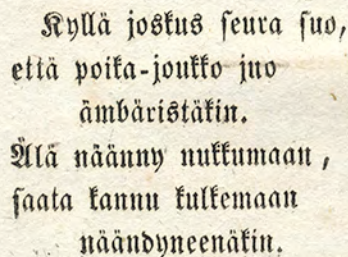 Kyllä joskus seura suo,
että poika-joukko juo
ämbäristäkin.
Älä näänny nukkumaan,
saata kannu kulkemaan
näändyneenäkin.